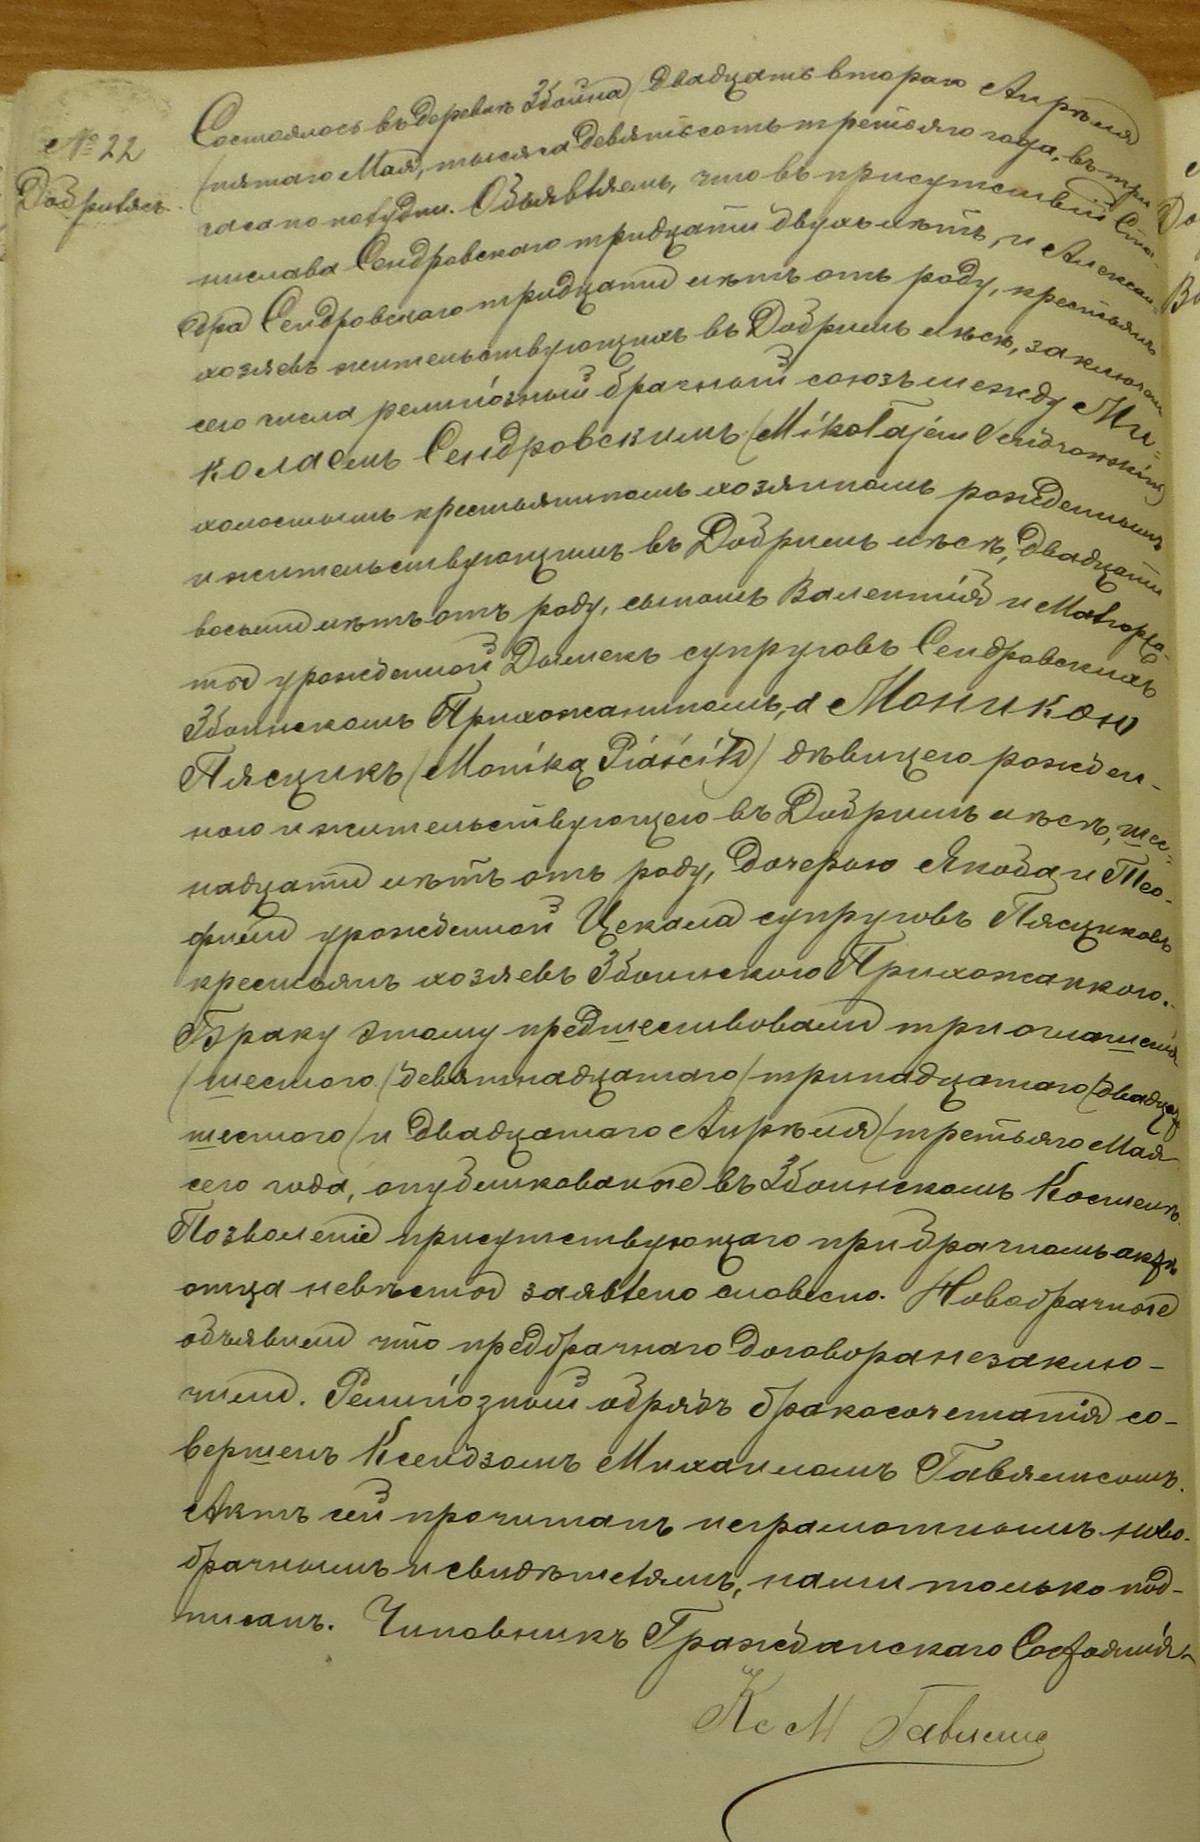 № 22
Добрылясъ.
Состоялось въ деревнѣ Збойна двадцать втораго Апрѣля
/пятаго Мая, тысяча девятьсотъ третьяго года, въ три
часа по полудни. Объявляемъ, что въ присутствіи Ста-
нислава Сендровскаго тридцати двухъ лѣтъ, и Алексан-
дра Сендровскаго тридцати лѣтъ отъ роду, крестьянъ
хозяевъ жительствующихъ въ Добрымъ лѣсѣ, заключенъ
сего числа религіозный брачный союзъ между Ми-
колаемъ Сендровскимъ /Mikołajem Sendrowskim/
холостымъ крестьяниномъ хозяиномъ рожденнымъ
и жительствующимъ въ Добрымъ лѣсѣ, двадцати
восьми лѣтъ отъ роду, сыномъ Валентія и Малгоржа-
ты урожденной Дымекъ супруговъ Сендровскихъ
Збоинскомъ Прихожаниномъ, а Моникою
Пясцикъ /Moniką Piaścik/ дѣвицею рожден-
ною и жительствующею въ Добрымъ лѣсѣ, шес-
надцати лѣтъ отъ роду, дочерью Якоба и Тео-
фили урожденной Цекала супруговъ Пясциковъ
крестьянъ хозяевъ Збоинскою Прихожанкою.
Браку этому предшествовали три оглашенія
/шестого /девятнадцатаго/ тринадцатаго /двадцать
шестого/ и двадцатаго Апрѣля /третьяго Мая
сего года, опубликованные въ Збоинскомъ Костелѣ.
Позволеніе присутствующаго при брачномъ актѣ
отца невѣсты заявлено словесно. Новобрачные
объявили что предбрачнаго договора незаклю-
чили. Религіозный обрядъ бракосочетанія со-
вершенъ Ксендзомъ Михаиломъ Гавялисомъ.
Актъ сей прочитанъ неграмотнымъ ново-
брачнымъ и свидѣтелямъ, нами только под-
писанъ. Чиновникъ Гражданскаго Состоянія
Кс М